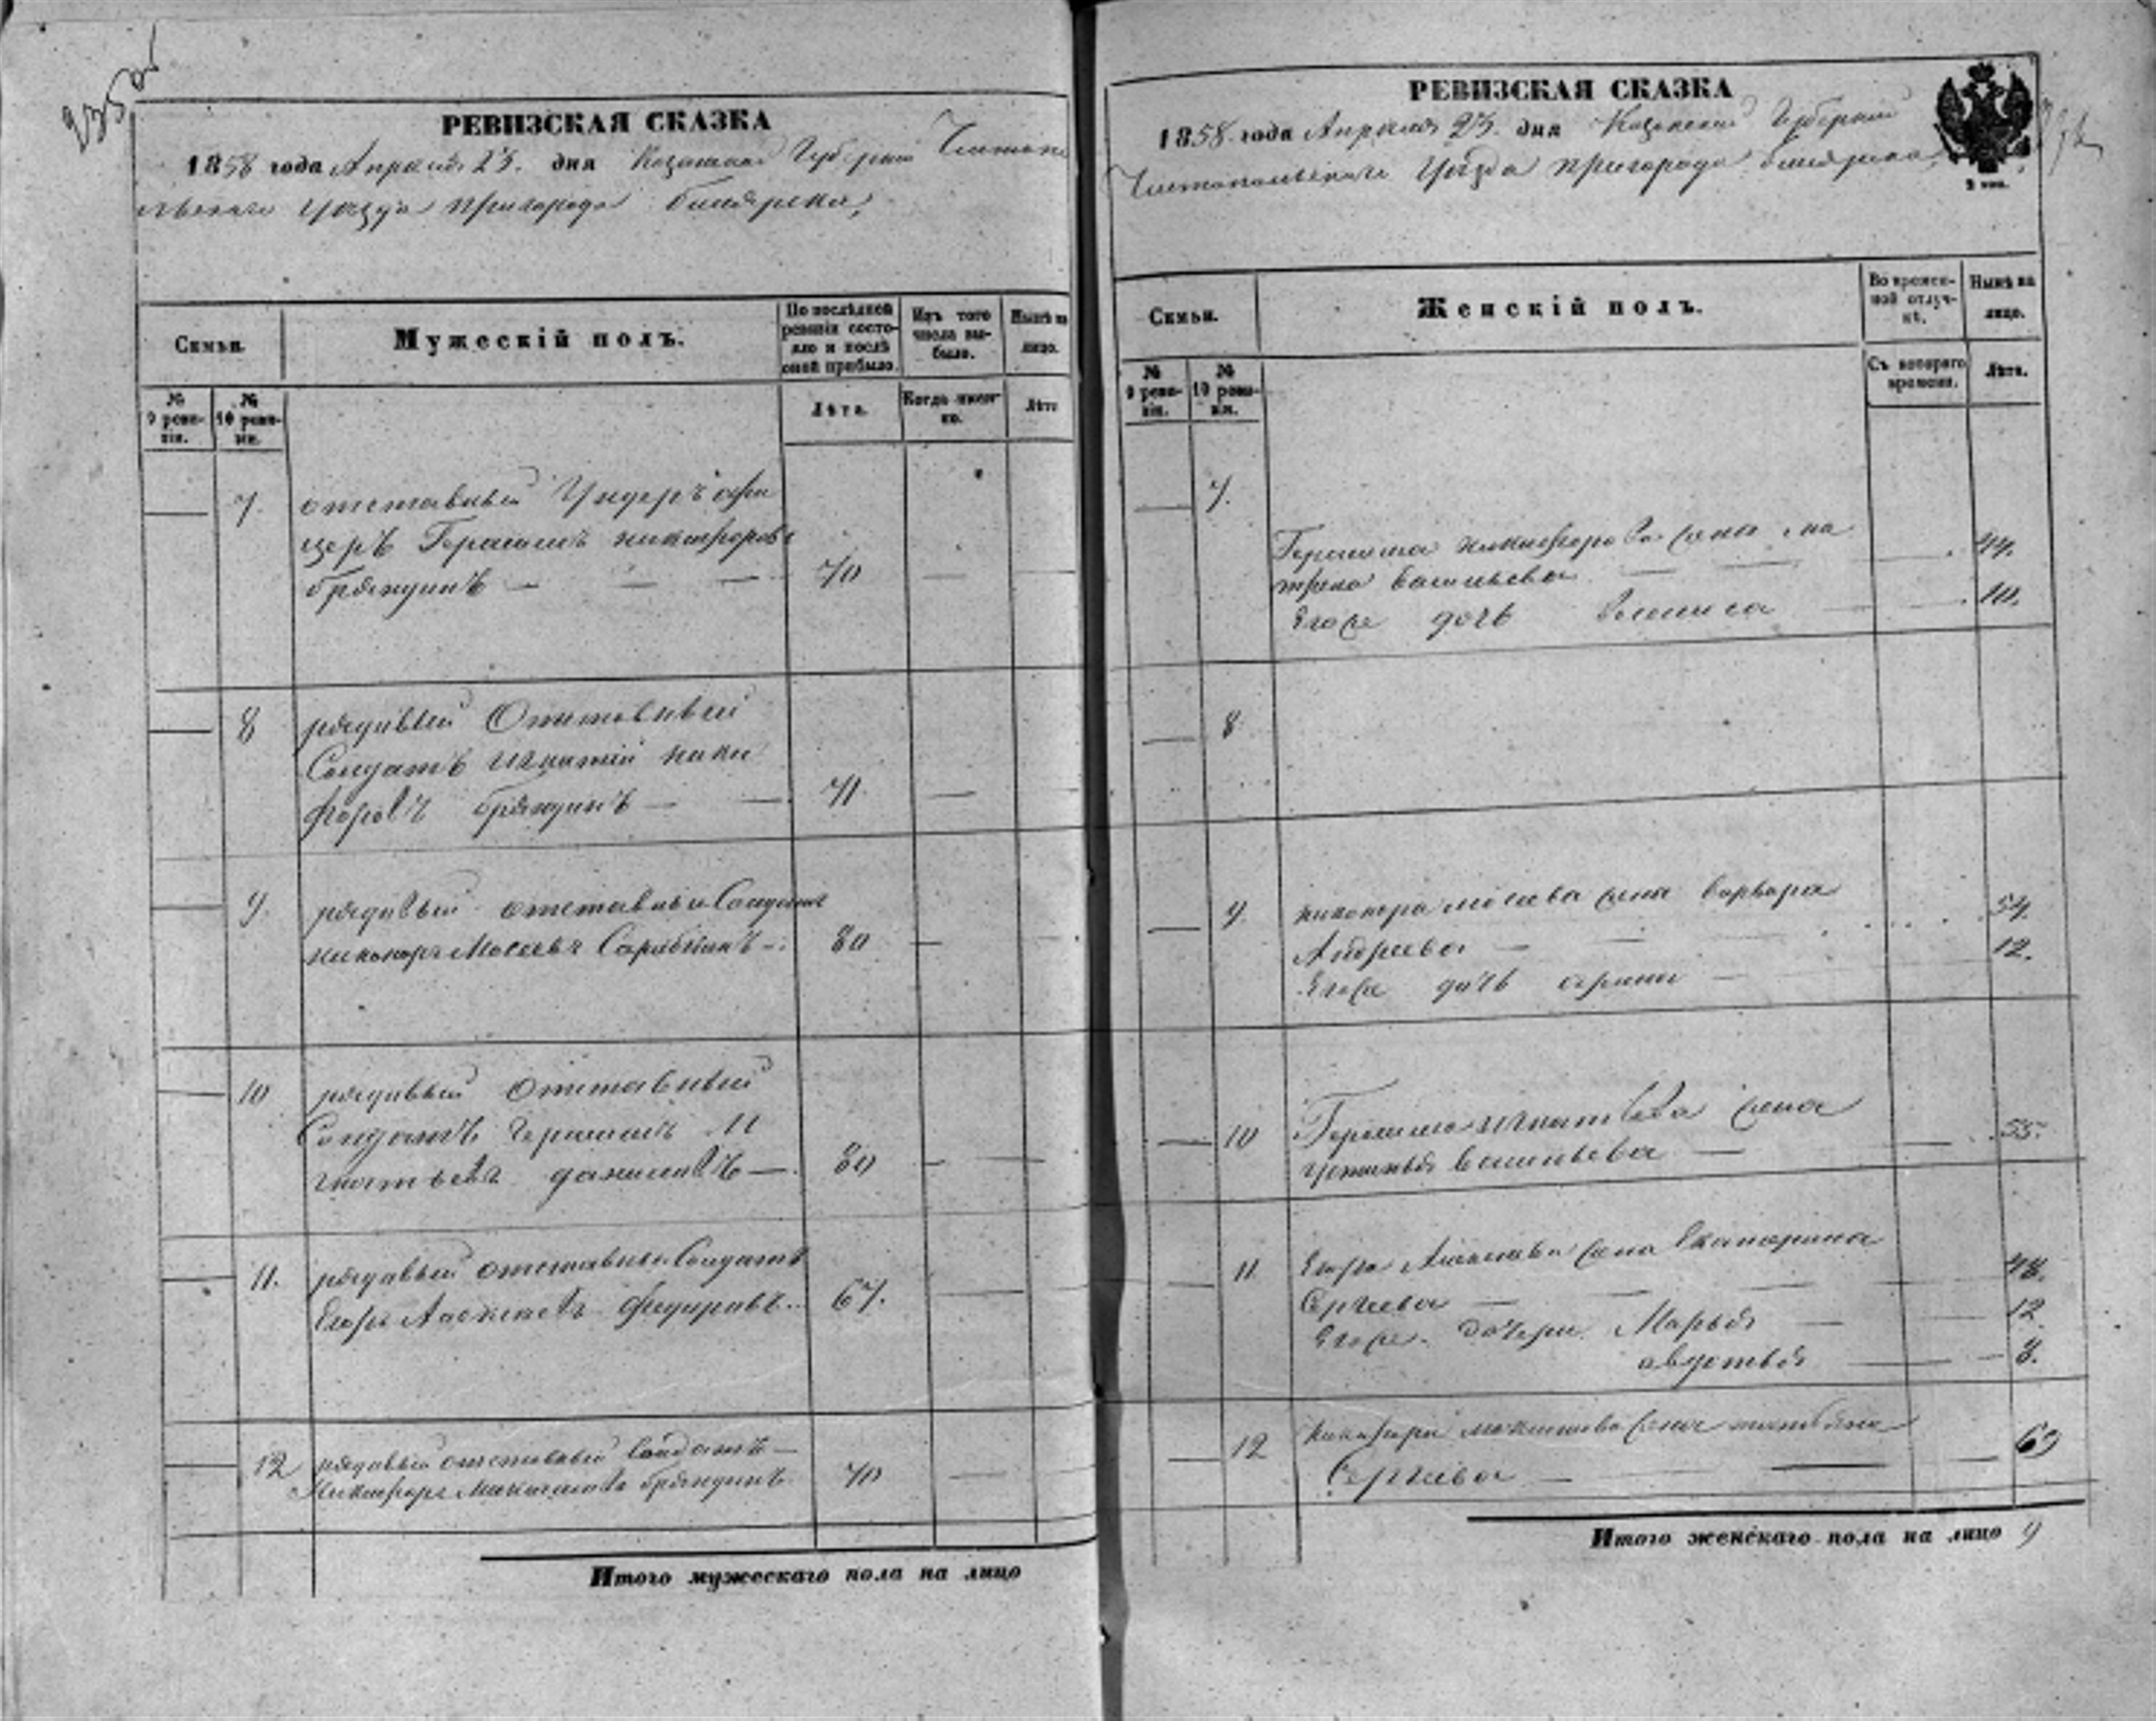 235
РЕВИЗСКАЯ СКАЗКА
1858 года Апреля 23. дня Казанской Губерніи Чистопо
льскаго Уезда пригорода билярска,
Семьи.
Мужескій полъ.
По послѣдней ревизіи состояло и послѣ оной прибыло.
Изъ того числа выбыло.
Нынѣ на лицо.
№ 9 ревизіи.
№ 10 ревизіи.
Лѣта.
Когда именно.
Лѣта
7. отставный Ундеръ офи
церъ Герасимъ никифоровъ
брянцинъ — — — 70
8 рядивый Отставный
Солдатъ игнатій ники
форовъ брянцинъ — — 71
9. рядивый отставный Солдатъ
никоноръ Мосеевъ — 80
10 рядивый отставный
Солдатъ Герасимъ И
гнатьевъ даниловъ — 80
11. рядавый отставный Солдатъ
Егоръ Федоровъ 67.
12 рядавый отставный Солдатъ —
Никифоръ брянцинъ 70
Итого мужескаго пола на лицо
РЕВИЗСКАЯ СКАЗКА
1858. года Апреля 23. дня Казанской Губерніи
Чистопольскаго Уезда пригорода билярска,
Семьи.
Женскій полъ.
Во временной отлучкѣ.
Нынѣ на лицо.
№ 9 ревизіи.
№ 10 ревизіи.
Съ котораго времени.
Лѣта.
7.
Герасима никифорова жена ма
трена васильева — — 44.
Егоже дочь — 10.
8
9. никонора мосеева жена варвара
Андреева — — 54.
Егоже дочь — 12.
10 Герасима игнатьева жена
устинья васильева — 55.
11 Егора жена Екатерина
Сергеева — — 48.
Егоже дочери Марья — 12.
авдотья — 8.
12 жена татьяна
Сергеева — — 69
Итого женскаго пола на лицо 9